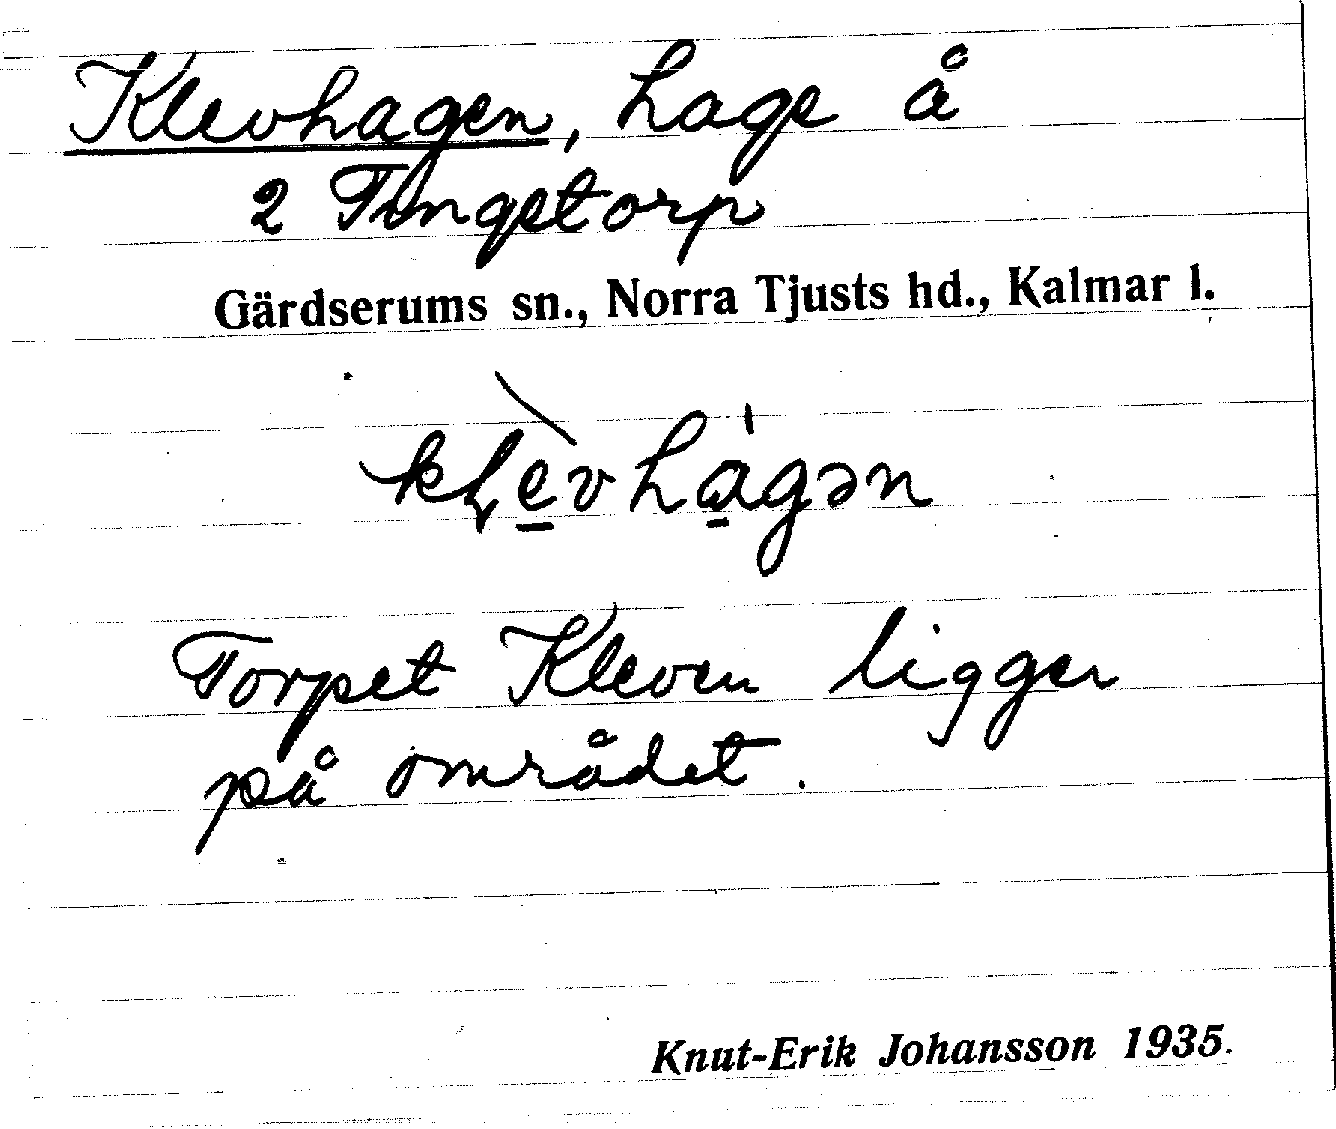 Klevhagen, hage å
2 Tingstorp
Gärdserums sn., Norra Tjusts hd., Kalmar l.
kḷè̠vhá̠gən
Torpet Kleven ligger
på området.
Knut-Erik Johansson 1935.